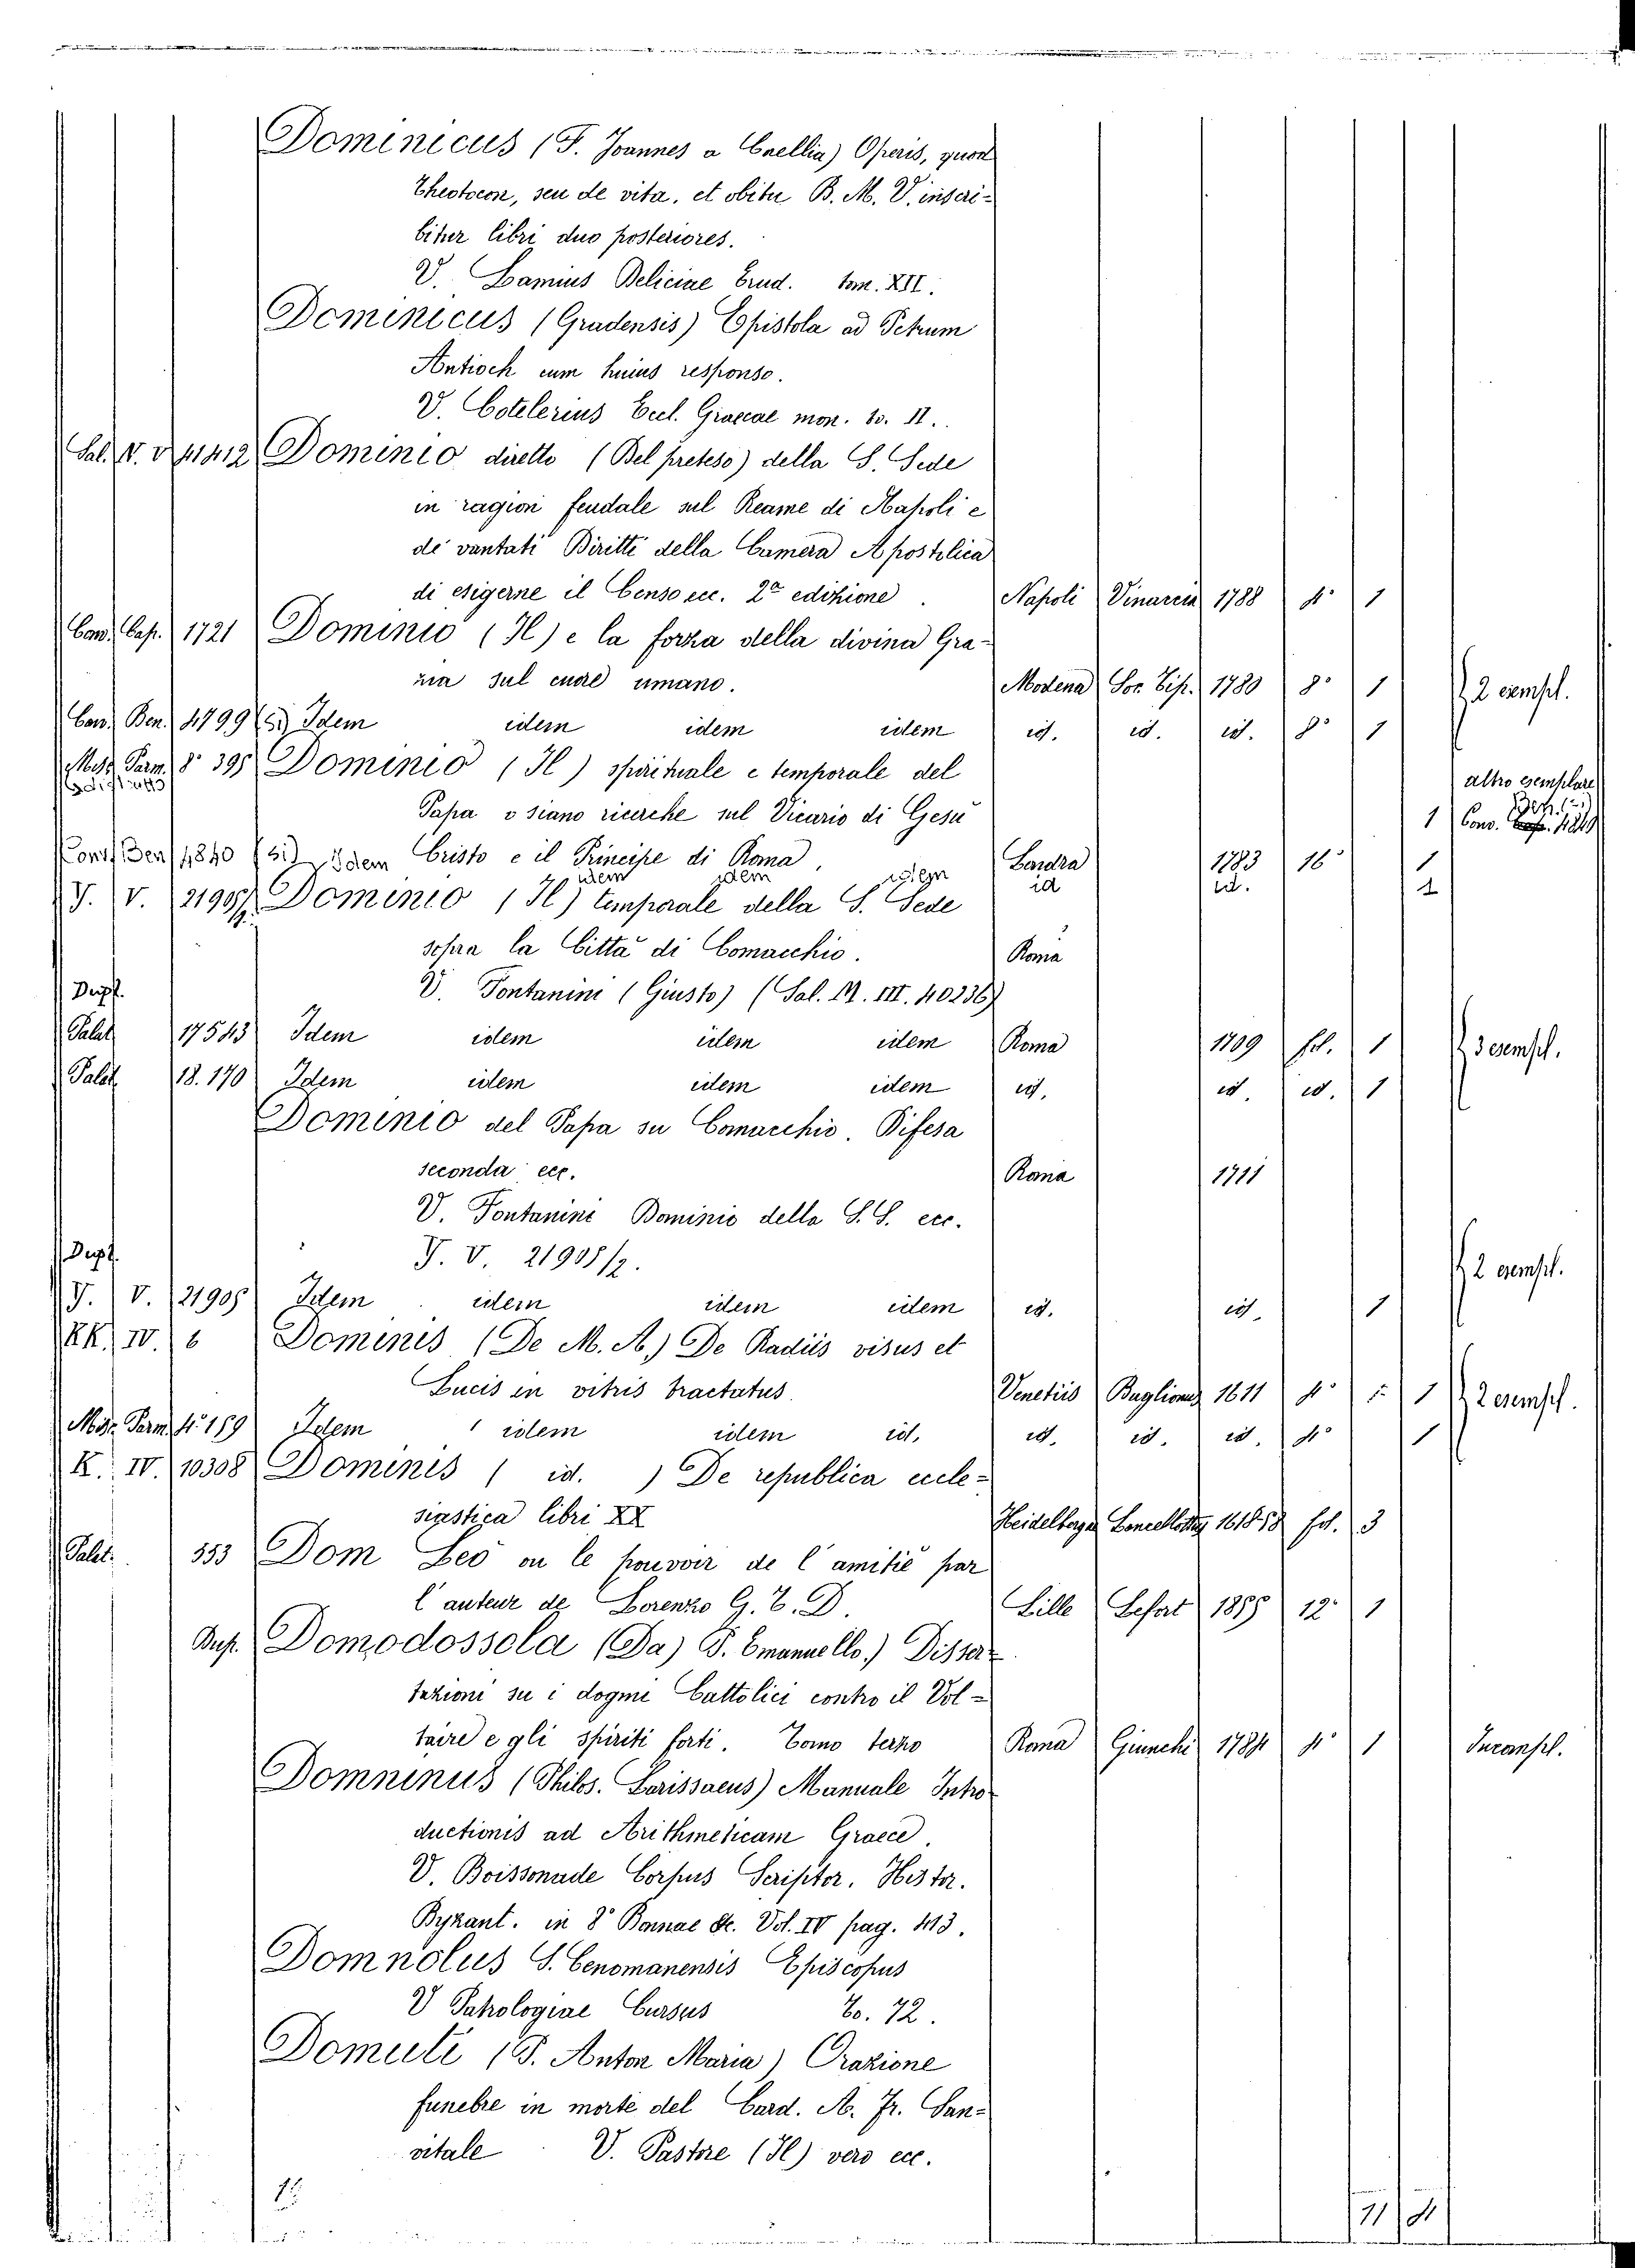 Dominicus (F. Joannes a Cnellia) Operis, quod
Theotocon, seu de vita, et obitu B. M. V. inscri-
bitur libri duo posteriores.
V. Lamius Deliciae Erud. tom. XII.
Dominicus (Gradensis) Epistola ad Petrum
Antioch cum huius responso.
V. Cotelerius Eccl. Graecae mon. to. II.
Sal. N. V 41412 Dominio diretto (Del preteso) della S. Sede
in ragion feudale sul Reame di Napoli e
de vantati Diritti della Camera Apostolica
di esigerne il Censo ecc. 2a edizione. Napoli Vinaccia 1788 4° 1
Con. Cap. 1721 Dominio (Il) e la forza della divina Gra-
zia sul cuore umano. Modena Soc. Tip. 1780 8° 1 2 esempl.
Con. Ben. 4799 (5i) Idem idem idem idem id. id. id. 8° 1
Miss. Parm. 8° 395 Dominio (Il) spirituale e temporale del
distrutto altro esemplare
Papa o siano ricerche sul Vicario di Gesù
1 Conv. Ben. 4849
Conv. Ben 4840 (5i) Idem Cristo e il Principe di Roma, Londra 1783 16° 1
idem idem idem id id. 1
T. V. 21905/2 Dominio (Il) temporale della S. Sede
sopra la Città di Comacchio. Roma
Dupl. V. Fontanini (Giusto) (Sal. M. III. 40236)
Palat 17543 Idem idem idem idem Roma 1709 fol. 1 3 esempl.
Palat 18.170 Idem idem idem idem id. id. id. 1
Dominio del Papa su Comacchio. Difesa
seconda ecc. Roma 1711
V. Fontanini Dominio della S. S. ecc.
Dupl. T. V. 21905/2. 2 esempl.
T. V. 21905 Idem idem idem idem id. id. 1
KK. IV. 6 Dominis (De M. A.) De Radiis visus et
Lucis in vitris tractatus. Venetiis Baglionus 1611 4° 1 2 esempl.
Miss. Parm. 4° 159 Idem idem idem id. id. id. id. 4° 1
K. IV. 10308 Dominis ( id. ) De republica eccle-
siastica libri XX Heidelbergae 1618-58 fol. 3
Palat. 553 Dom Leo ou le pouvoir de l'amitié par
l'auteur de Lorenzo G. T. D. Lille Lefort 1855 12° 1
Dup. Domodossola (Da) P. Emanuello.) Disser-
tazioni su i dogmi Cattolici contro il Vol-
taire e gli spiriti forti. Tomo terzo Roma Giunchi 1784 4° 1 Incompl.
Domninus (Philos. Larissaeus) Manuale Intro-
ductionis ad Arithmeticam Graece.
V. Boissonade Corpus Scriptor. Histor.
Byzant. in 8° Bonnae &c. Vol. IV pag. 413.
Domnolus S. Cenomanensis Episcopus
V Patrologiae Cursus To. 72.
Domuli (P. Anton Maria) Orazione
funebre in morte del Card. A. Fr. San-
vitale V. Pastore (Il) vero ecc.
15
11 4